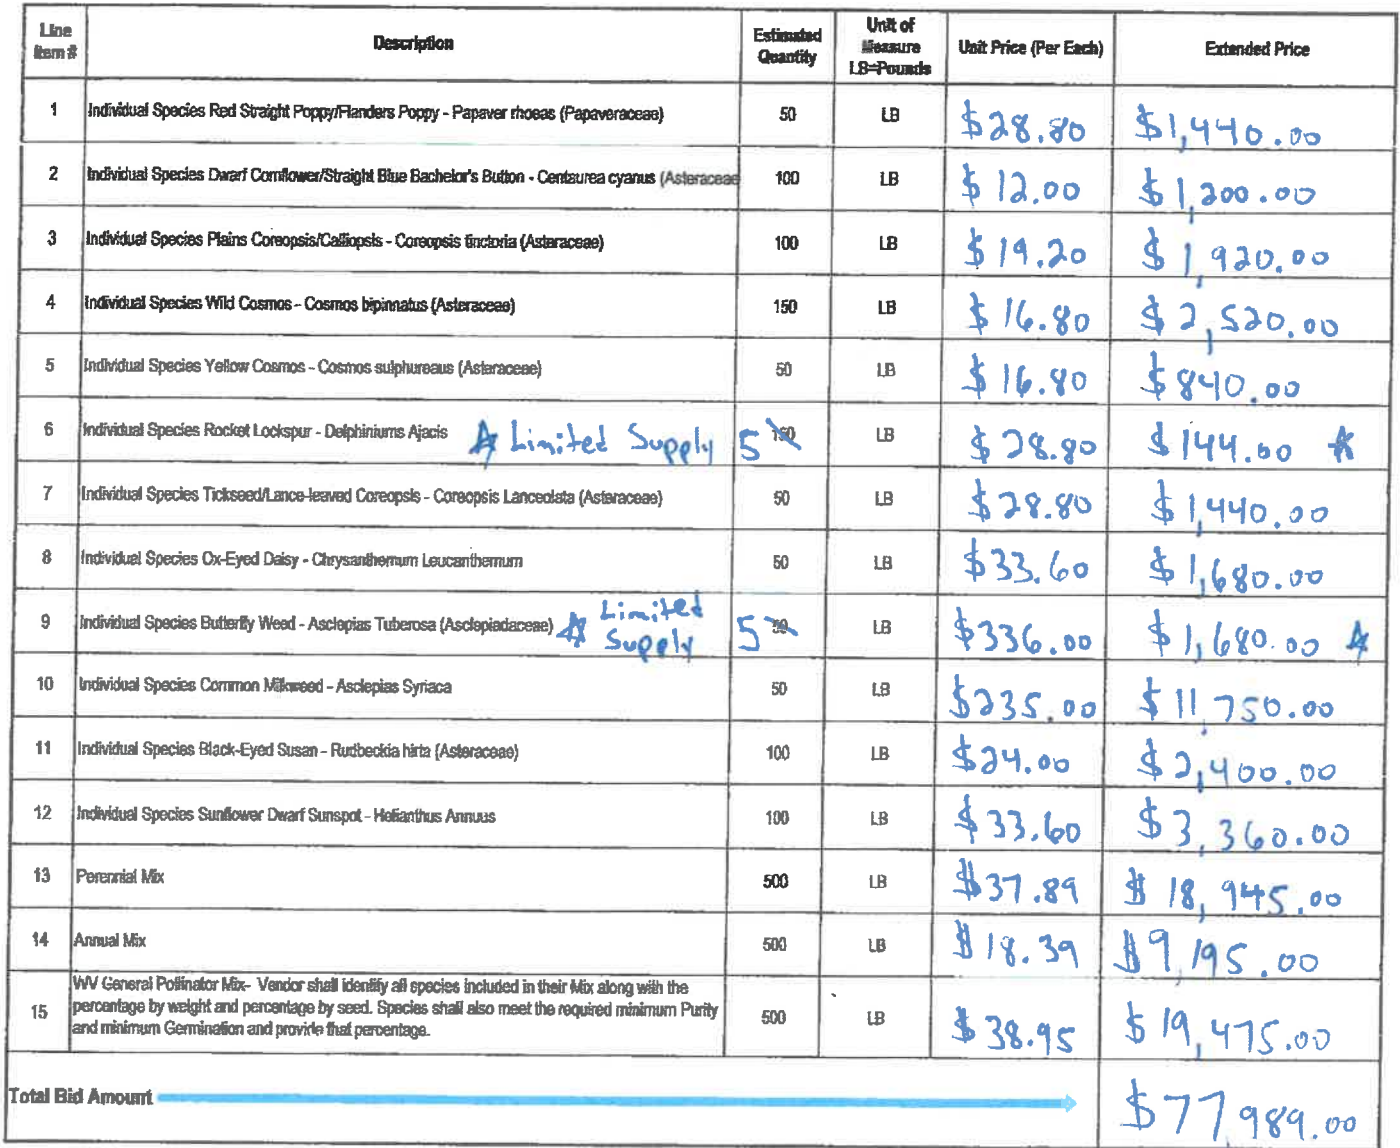 Line Item # Description Estimated Quantity Unit of Measure LB=Pounds Unit Price (Per Each) Extended Price
1 Individual Species Red Straight Poppy/Flanders Poppy - Papaver rhoeas (Papaveraceae) 50 LB $28.80 $1,440.00
2 Individual Species Dwarf Cornflower/Straight Blue Bachelor's Button - Centaurea cyanus (Asteraceae 100 LB $12.00 $1,200.00
3 Individual Species Plains Coreopsis/Calliopsis - Coreopsis tinctoria (Asteraceae) 100 LB $19.20 $1,920.00
4 Individual Species Wild Cosmos - Cosmos bipinnatus (Asteraceae) 150 LB $16.80 $2,520.00
5 Individual Species Yellow Cosmos - Cosmos sulphureaus (Asteraceae) 50 LB $16.80 $840.00
6 Individual Species Rocket Lockspur - Delphiniums Ajacis ☆ Limited Supply 5 LB $28.80 $144.00 ☆
7 Individual Species Tickseed/Lance-leaved Coreopsis - Coreopsis Lanceolata (Asteraceae) 50 LB $28.80 $1,440.00
8 Individual Species Ox-Eyed Daisy - Chrysanthemum Leucanthemum 50 LB $33.60 $1,680.00
9 Individual Species Butterfly Weed - Asclepias Tuberosa (Asclepiadaceae) ☆ Limited Supply 5 LB $336.00 $1,680.00 ☆
10 Individual Species Common Milkweed - Asclepias Syriaca 50 LB $235.00 $11,750.00
11 Individual Species Black-Eyed Susan - Rudbeckia hirta (Asteraceae) 100 LB $24.00 $2,400.00
12 Individual Species Sunflower Dwarf Sunspot - Helianthus Annuus 100 LB $33.60 $3,360.00
13 Perennial Mix 500 LB $37.89 $18,945.00
14 Annual Mix 500 LB $18.39 $9,195.00
15 WV General Pollinator Mix- Vendor shall identify all species included in their Mix along with the
percentage by weight and percentage by seed. Species shall also meet the required minimum Purity
and minimum Germination and provide that percentage. 500 LB $38.95 $19,475.00
Total Bid Amount $77,989.00